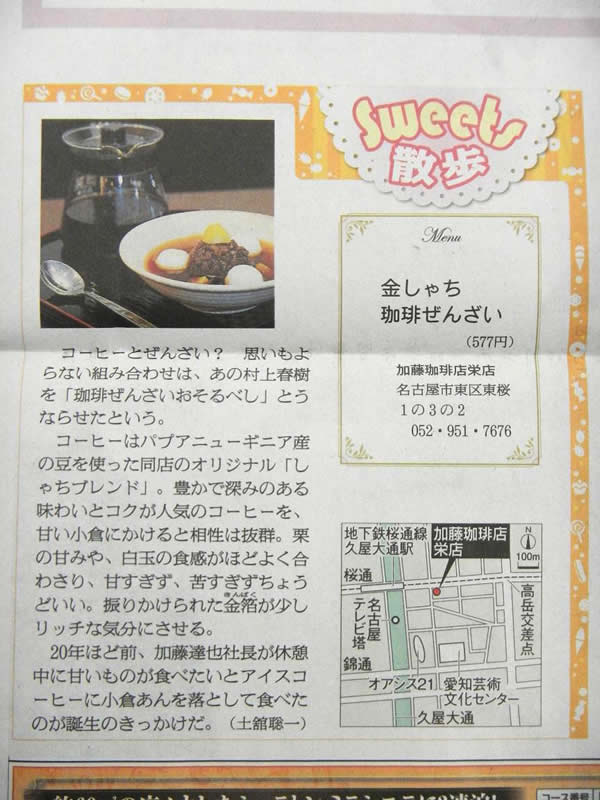 Sweets
散歩
Menu
金しゃち
珈琲ぜんざい
(577円)
加藤珈琲店栄店
名古屋市東区東桜
1の3の2
052・951・7676
コーヒーとぜんざい? 思いもよ
らない組み合わせは、あの村上春樹
を「珈琲ぜんざいおそるべし」とう
ならせたという。
コーヒーはパプアニューギニア産
の豆を使った同店のオリジナル「し
ゃちブレンド」。豊かで深みのある
味わいとコクが人気のコーヒーを、
甘い小倉にかけると相性は抜群。栗
の甘みや、白玉の食感がほどよく合
わさり、甘すぎず、苦すぎずちょう
どいい。振りかけられた金箔が少し
きんぱく
リッチな気分にさせる。
20年ほど前、加藤達也社長が休憩
中に甘いものが食べたいとアイスコ
ーヒーに小倉あんを落として食べた
のが誕生のきっかけだ。(土舘聡一)
地下鉄桜通線
久屋大通駅
加藤珈琲店
栄店
N
100m
桜通
名古屋
テレビ塔
高岳交差点
錦通
オアシス21
愛知芸術
文化センター
久屋大通
コース番号